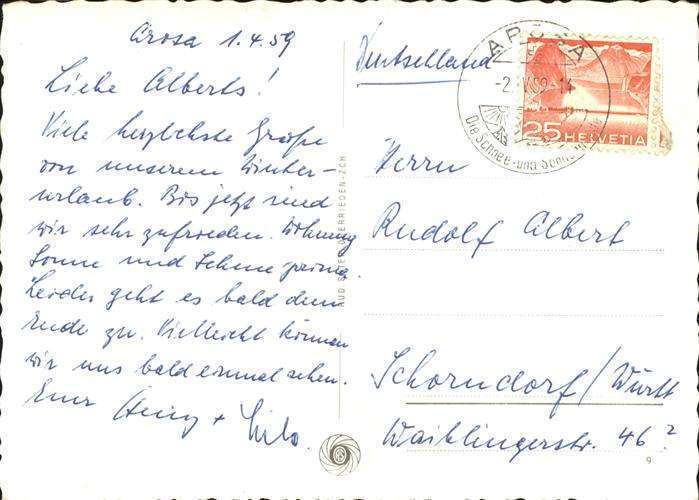 Arosa 1.4.59
Liebe Alberts!
Viele herzlichste Grüße
von unserem Winter-
urlaub. Bis jetzt sind
wir sehr zufrieden. Wohnung
Sonne und Schnee prima.
Leider geht es bald dem
Ende zu. Vielleicht können
wir uns bald einmal sehen.
Eure Heinz +
Deutschland
AROSA
25 HELVETIA
Die Schnee- und
Herrn
Rudolf Albert
Schorndorf/Württ
Waiblingerstr. 46?
OBERRIEDEN-ZCH
9